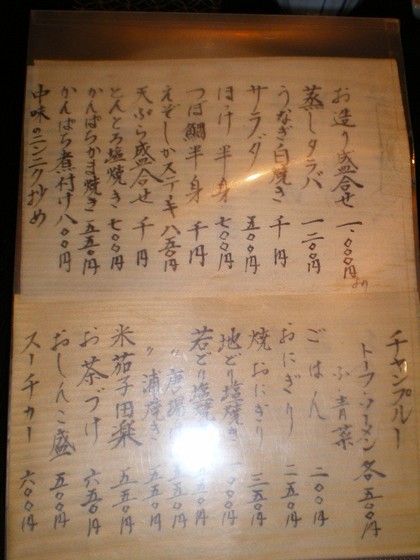 お造り盛合せ 一、000円より
蒸しタラバ 一二00円
うなぎ白焼き 千円
サラダ 五00円
ほけ半身 七00円
つぼ鯛半身 千円
えぞしかステーキ 八五0円
天ぷら盛合せ 千円
とんとろ塩焼き 七00円
かんぱちかま焼き 五五0円
かんぱち煮付け 八00円
中味のニンニク炒め
チャンプルー
トーフ・ソーメン
ふ・青菜 各五00円
ごはん 二00円
おにぎり 二五0円
焼おにぎり 三五0円
地どり塩焼き 一000円
若どり塩焼 五五0円
〃唐揚 五五0円
〃浦焼き 五五0円
米茄子田楽 五五0円
お茶づけ 六五0円
おしんこ盛 五五0円
スーチカー 六00円